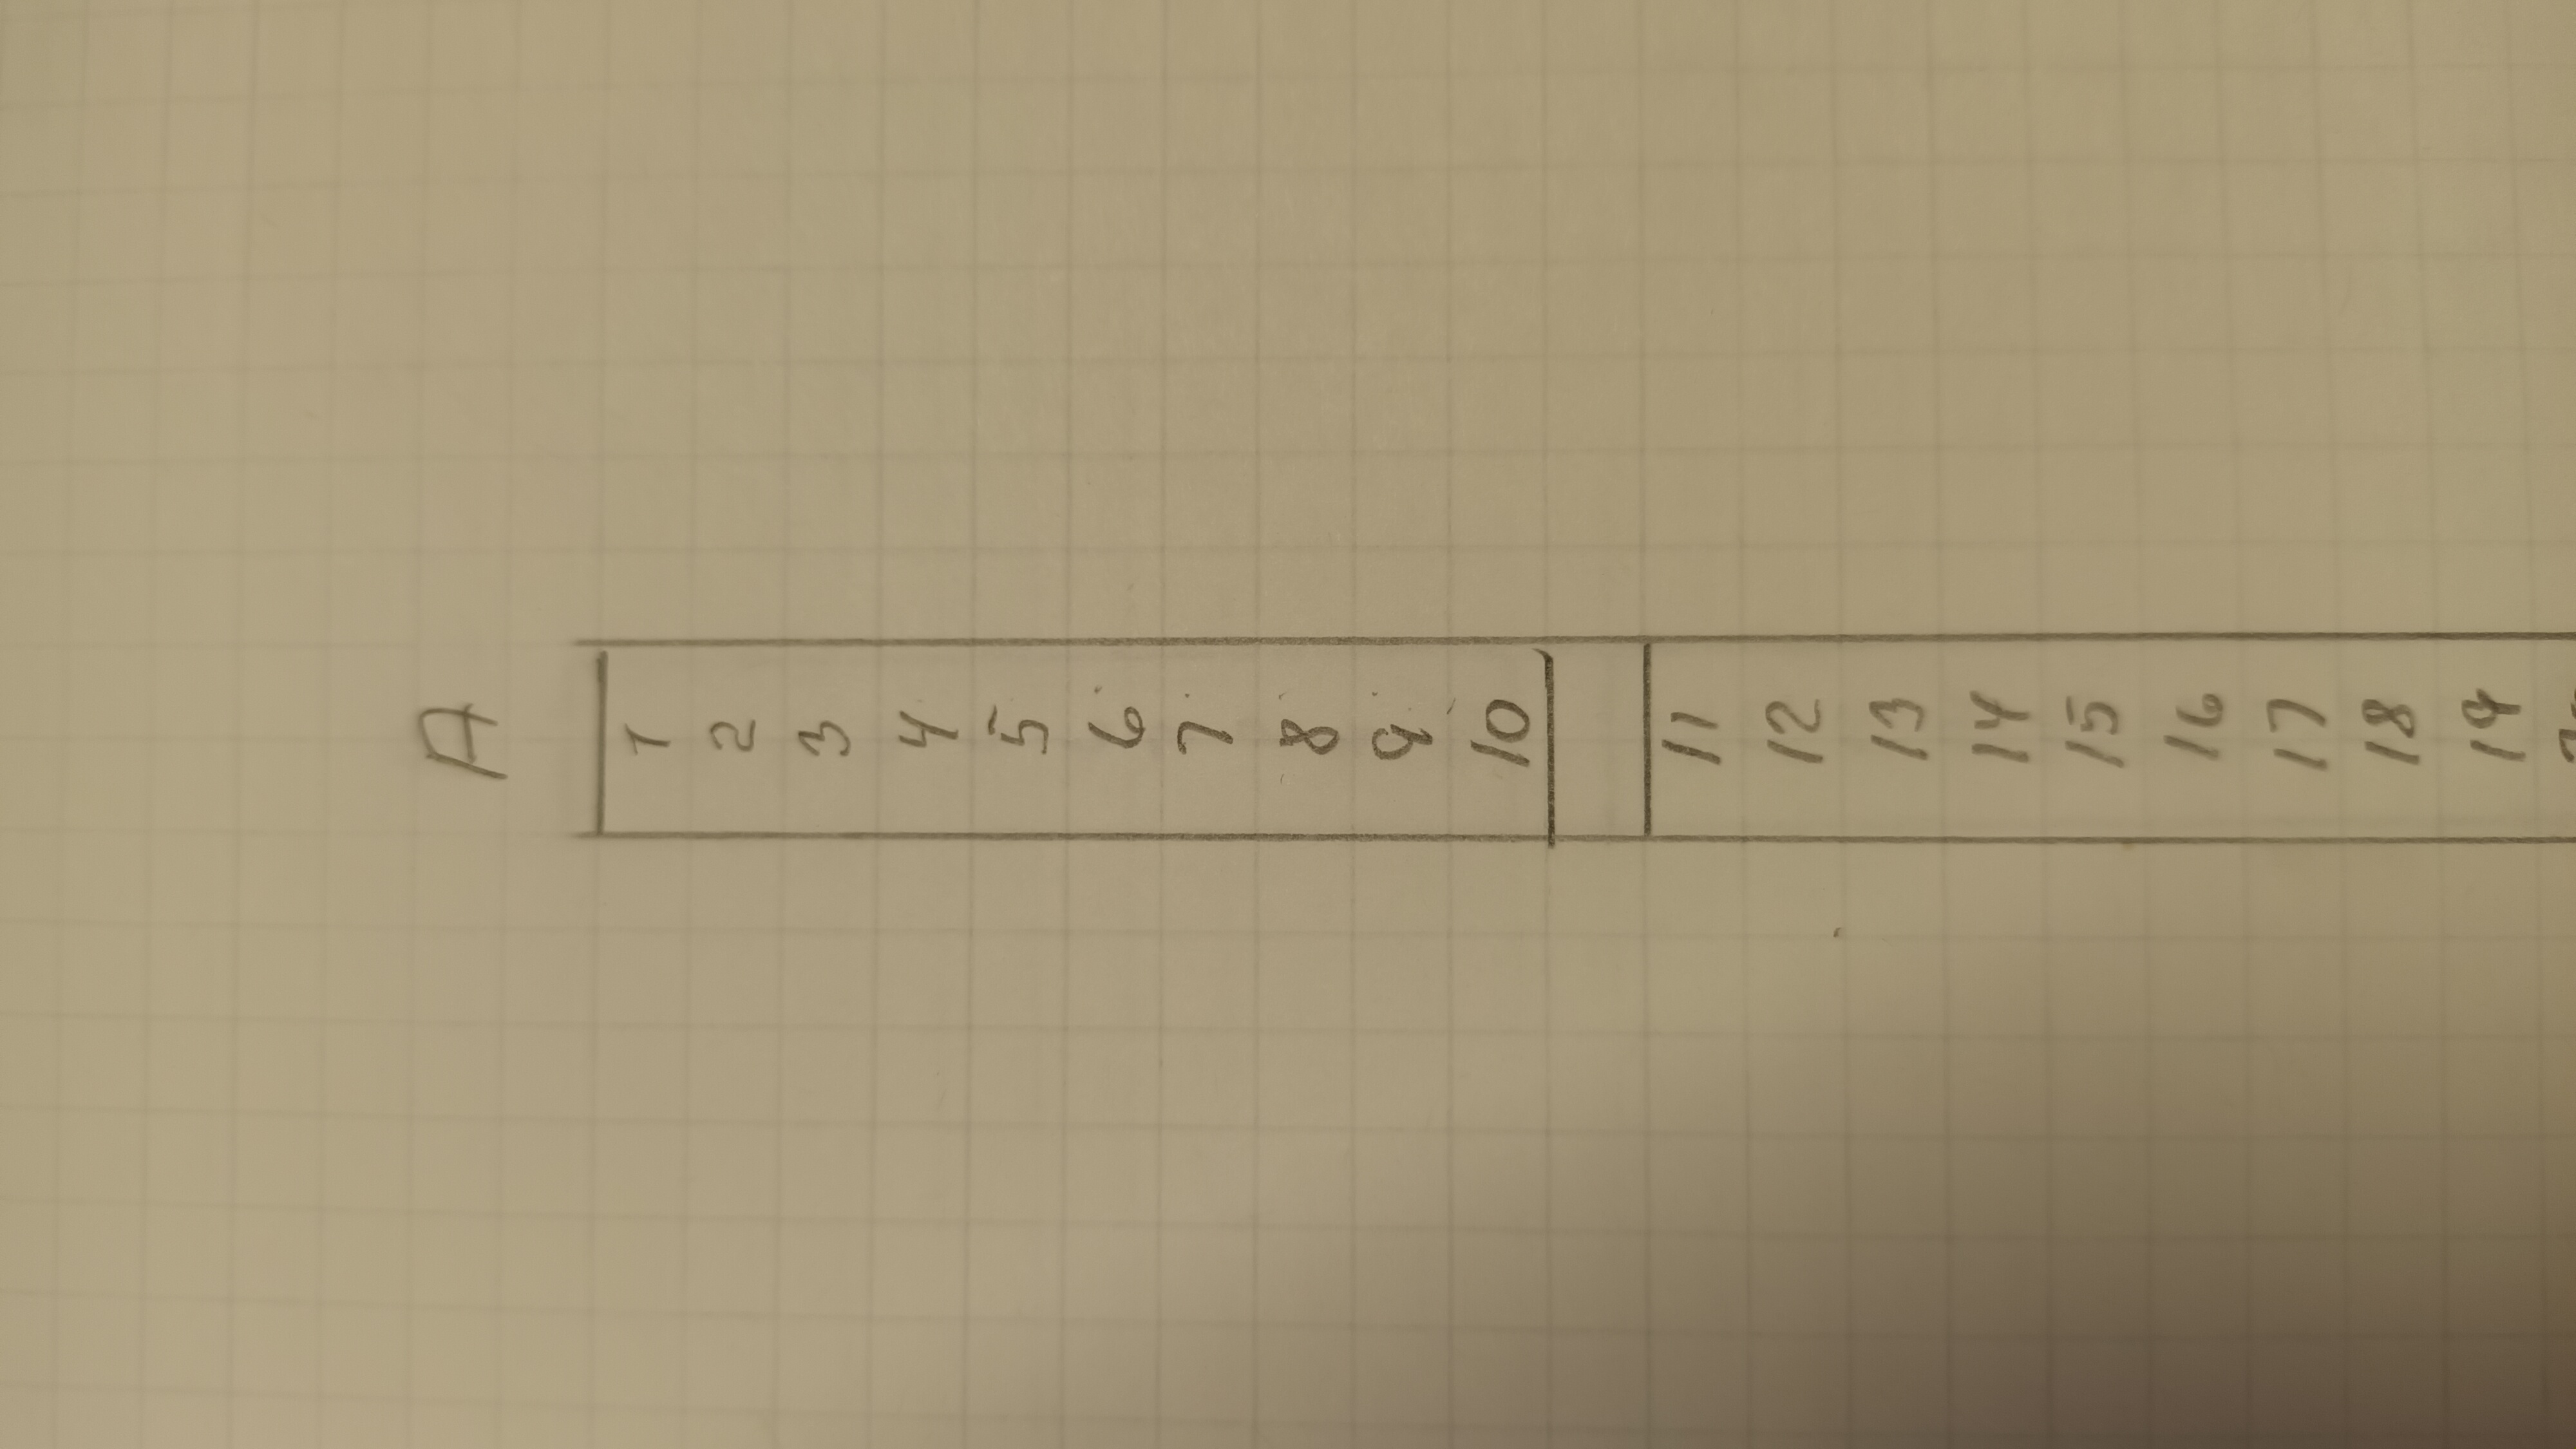 A
1
2
3
4
5
6
7
8
9
10
11
12
13
14
15
16
17
18
19